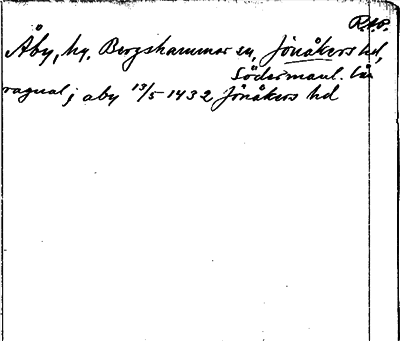 R.A.P.
Åby, hg, Bergshammar sn, Jönåkers hd,
Södermanl. län
ragual j aby 13/5 1432 Jönåkers hd